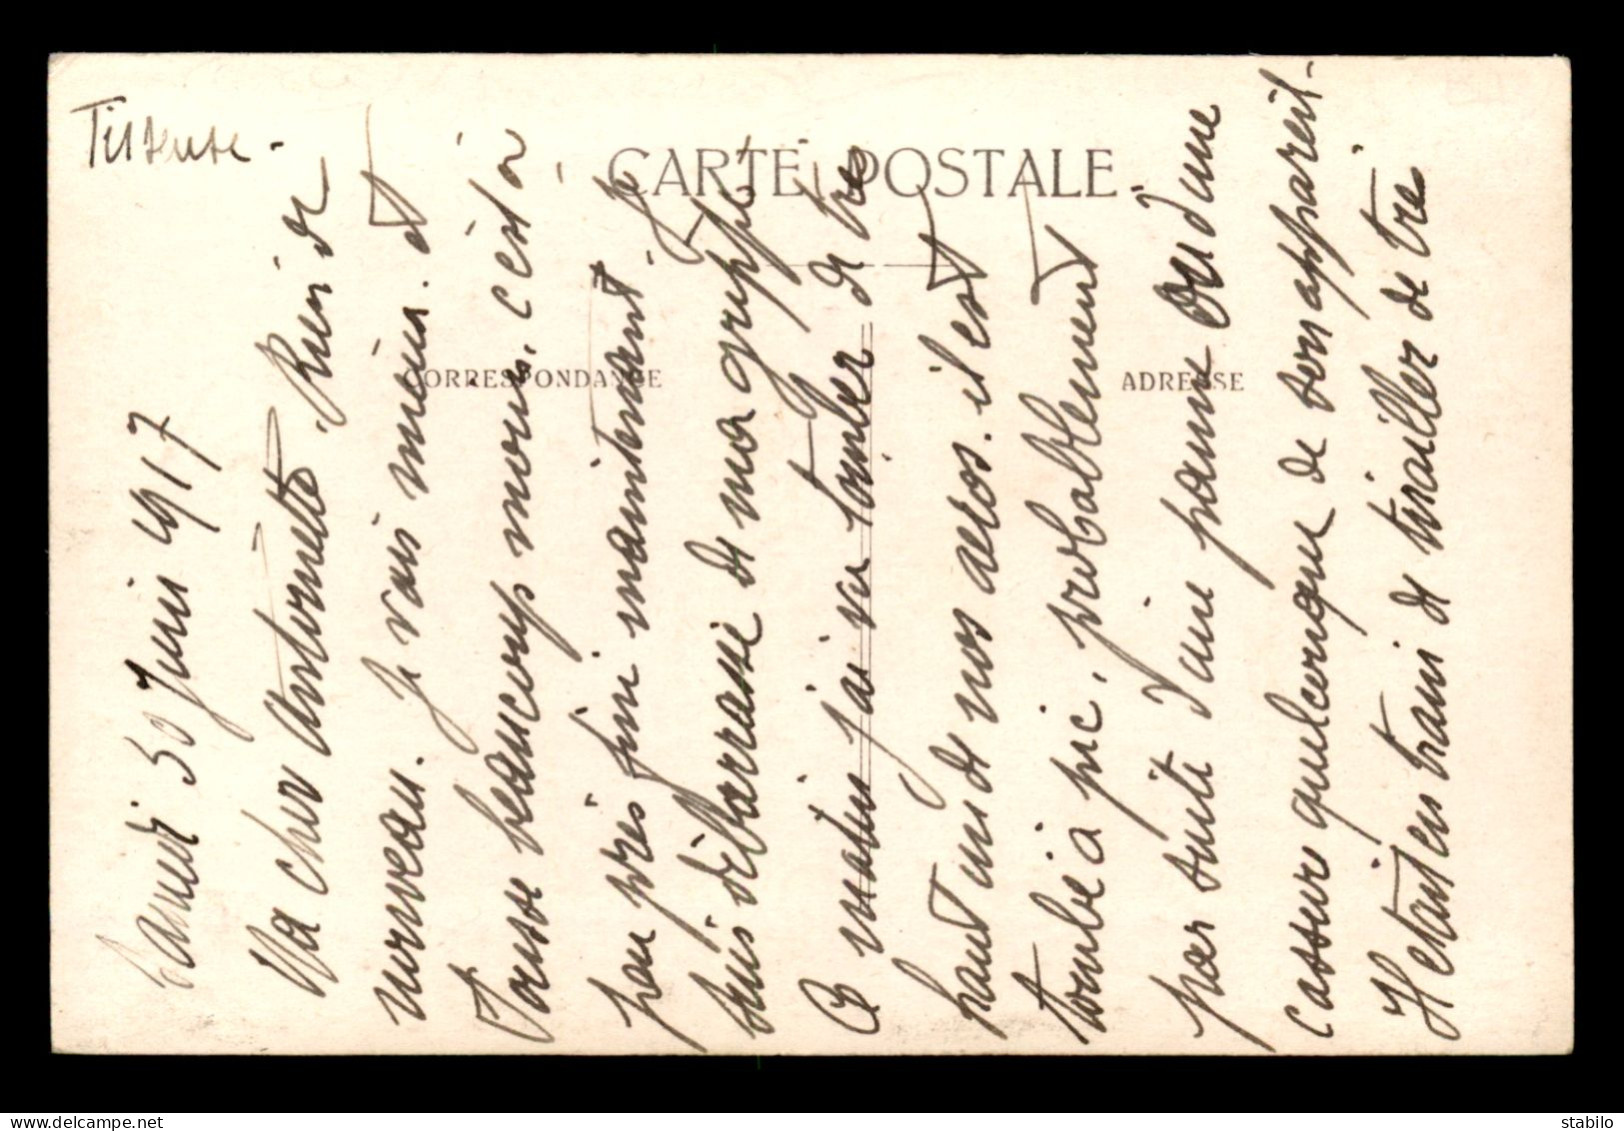 CARTE POSTALE
CORRESPONDANCE
ADRESSE
Samedi 30 Juin 1917
Ma cher Antoinette. Rien de
nouveau. Je vais mieux. et
tousse beaucoup moins. c'est à
peu près fini maintenant. Je
suis débarrassé de ma grippe.
Ce matin j'ai vu tomber de très
haut un de nos aéros. il est
tombé à pic, probablement
par suite d'une panne ou d'une
cassure quelconque de son appareil.
Il était en train de tirailler de très
delcampe.net
stabilo